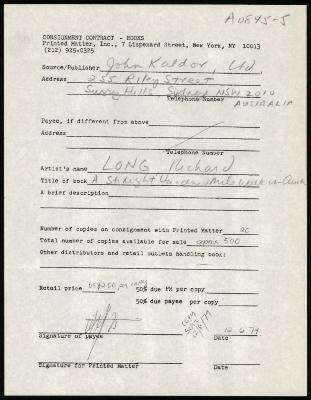 A0E45-5
CONSIGNMENT CONTRACT - BOOKS
Printed Matter, Inc., 7 Lispenard Street, New York, NY 10013
(212) 925-0325
Source/Publisher John Kaldor, Ltd,
Address 255 Riley Street
Surry Hills Sydney NSW 2010
Telephone Number
AUSTRALIA
Payee, if different from above
Address
Telephone Number
Artist's name LONG Richard
Title of book A Straight Hundred Mile Walk in
A brief description
Number of copies on consignment with Printed Matter 20
Total number of copies available for sale approx 500
Other distributors and retail outlets handling book:
Retail price per copy 50% due PM per copy
50% due payee per copy
copy sent 12/6/79
12.6.79
Signature of payee Date
Signature for Printed Matter Date